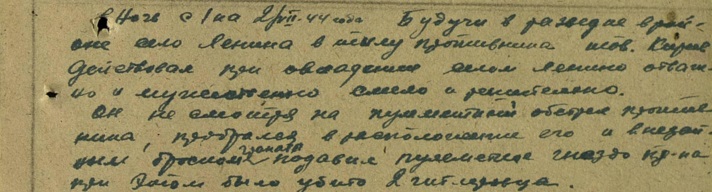 в Ночь с 1 на 2/VII-44 года Будучи в разведке в рай-
оне село Ленина в тылу противника тов. Киреев
действовал при овладении селом Ленино отваж-
но и мужественно смело и решительно.
Он не смотря на пулеметный обстрел против-
ника, пробрался в расположение его и внезап-
ным броском гранаты подавил пулеметное гнездо пр-ка
при этом было убито 2 гитлеровца.